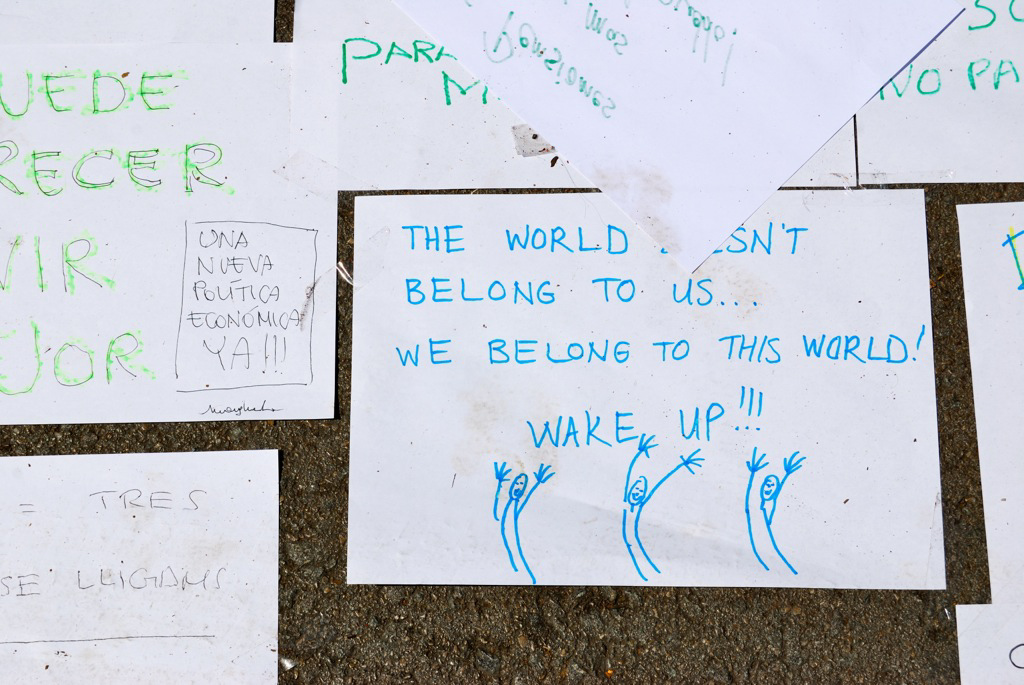 PARA
NO PA
UEDE
RECER
VIR
JOR
UNA
NUEVA
POLÍTICA
ECONÓMICA
YA!!!
THE WORLD SN'T
BELONG TO US...
WE BELONG TO THIS WORLD!
WAKE UP!!!
= TRES
SE LLIGAMS